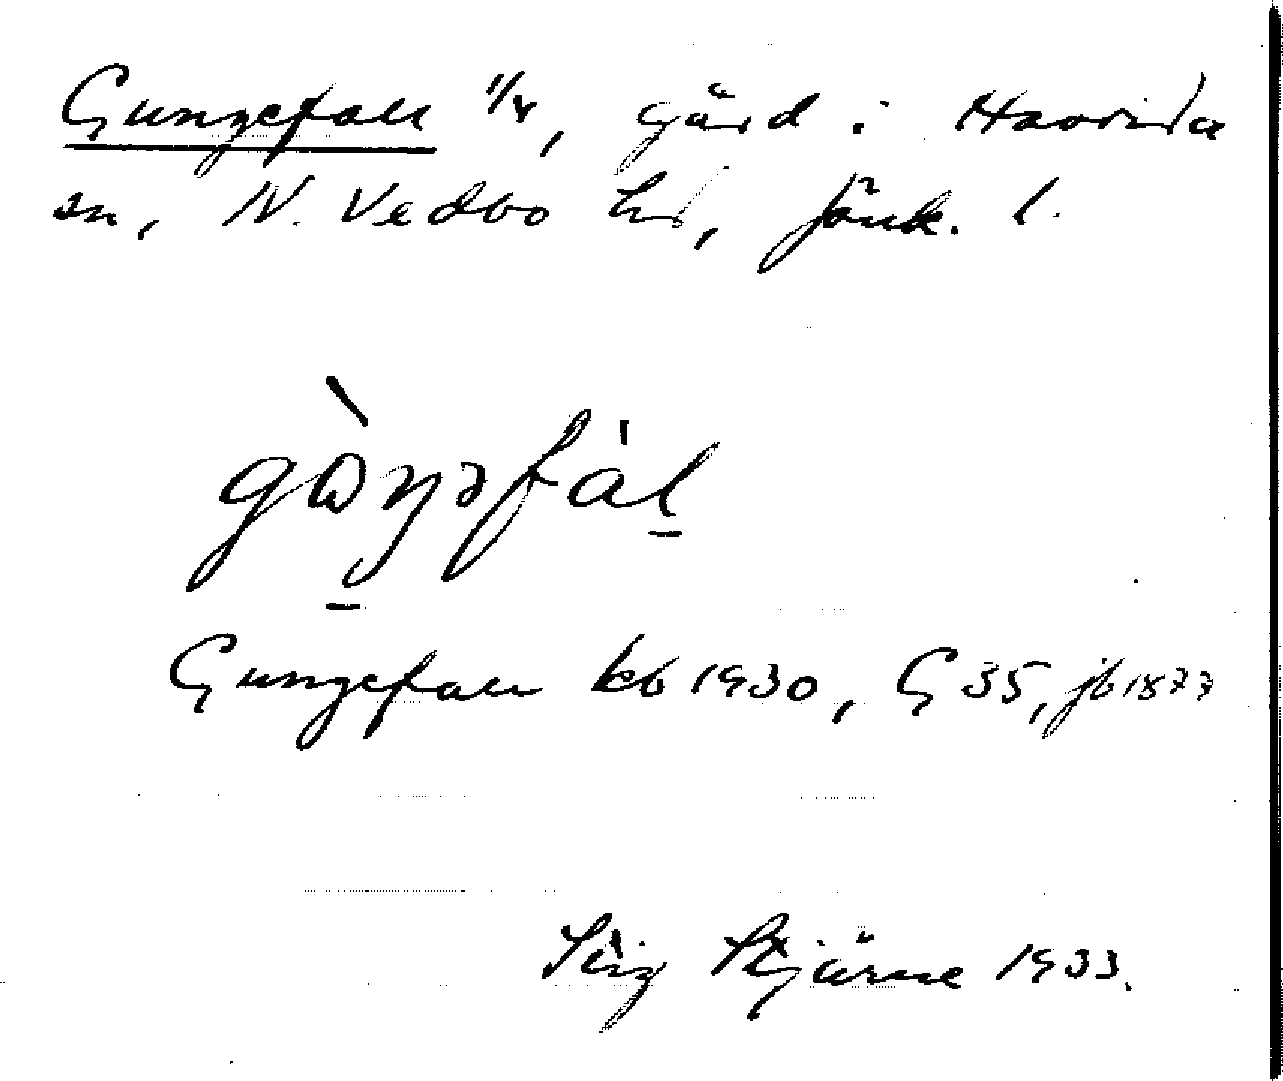 Gungefall 1/4, gård i Haurida
sn, N. Vedbo hd, Jönk. l.
gòŋəfàl
Gungefall kb 1930, G 35, jb 1877
Stig Stjärne 1933.